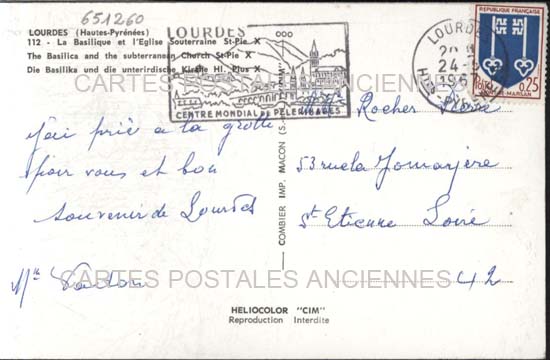 651260
LOURDES (Hautes-Pyrénées)
112 - La Basilique et l'Eglise Souterraine St-Pie X
The Basilica and the subterranean Church St-Pie X
Die Basilika und die unterirdische Kirche Hl. Pius X
LOURDES
CENTRE MONDIAL DE PELERINAGES
LOURDES
24-
196
REPUBLIQUE FRANÇAISE
0,25
MONT-DE-MARSAN
CARTES POSTALES ANCIENNES
J'ai prié à la grotte
pour vous et bon
Souvenir de Lourdes
Rocher
53 rue la
St Etienne Loire
42
COMBIER IMP. MACON
CARTES POSTALES ANCIENNES
HELIOCOLOR "CIM"
Reproduction Interdite